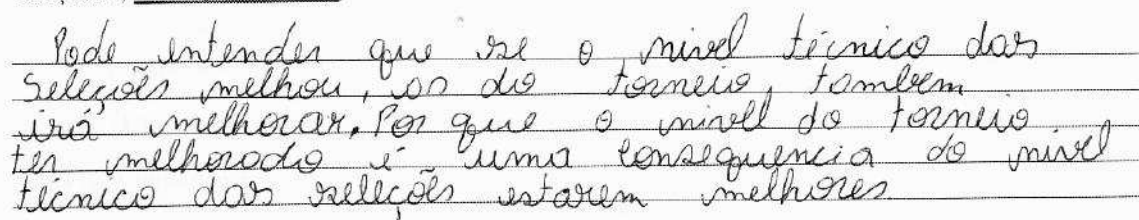 Pode entender que se o nivel técnico das
seleções melhou, os do torneio, tambem
irá melhorar. Por que o nivell do torneio
ter melhorado é uma consequencia do nivel
técnico das seleções estarem melhores